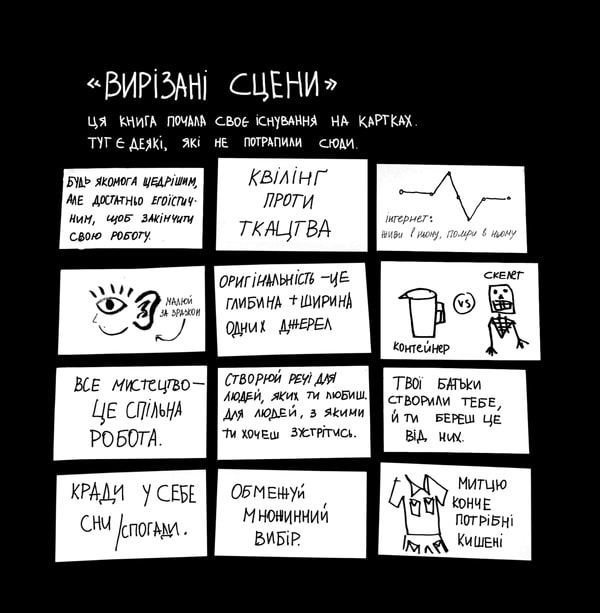 «ВИРІЗАНІ СЦЕНИ»
ЦЯ КНИГА ПОЧАЛА СВОЄ ІСНУВАННЯ НА КАРТКАХ.
ТУТ Є ДЕЯКІ, ЯКІ НЕ ПОТРАПИЛИ СЮДИ.
БУДЬ ЯКОМОГА ЩЕДРІШИМ,
АЛЕ ДОСТАТНЬО ЕГОЇСТИЧ-
НИМ, ЩОБ ЗАКІНЧИТИ
СВОЮ РОБОТУ.
КВІЛІНГ
ПРОТИ
ТКАЦТВА
ІНТЕРНЕТ:
ЖИВИ В НЬОМУ, ПОМРИ В НЬОМУ
МАЛЮЙ
ЗА ЗРАЗКОМ
ОРИГІНАЛЬНІСТЬ – ЦЕ
ГЛИБИНА + ШИРИНА
ОДНИХ ДЖЕРЕЛ
СКЕЛЕТ
VS
КОНТЕЙНЕР
ВСЕ МИСТЕЦТВО –
ЦЕ СПІЛЬНА
РОБОТА.
СТВОРЮЙ РЕЧІ ДЛЯ
ЛЮДЕЙ, ЯКИХ ТИ ЛЮБИШ.
ДЛЯ ЛЮДЕЙ, З ЯКИМИ
ТИ ХОЧЕШ ЗУСТРІТИСЬ.
ТВОЇ БАТЬКИ
СТВОРИЛИ ТЕБЕ,
Й ТИ БЕРЕШ ЦЕ
ВІД НИХ.
КРАДИ У СЕБЕ
СНИ/СПОГАДИ.
ОБМЕЖУЙ
МНОЖИННИЙ
ВИБІР.
МИТЦЮ
КОНЧЕ
ПОТРІБНІ
КИШЕНІ